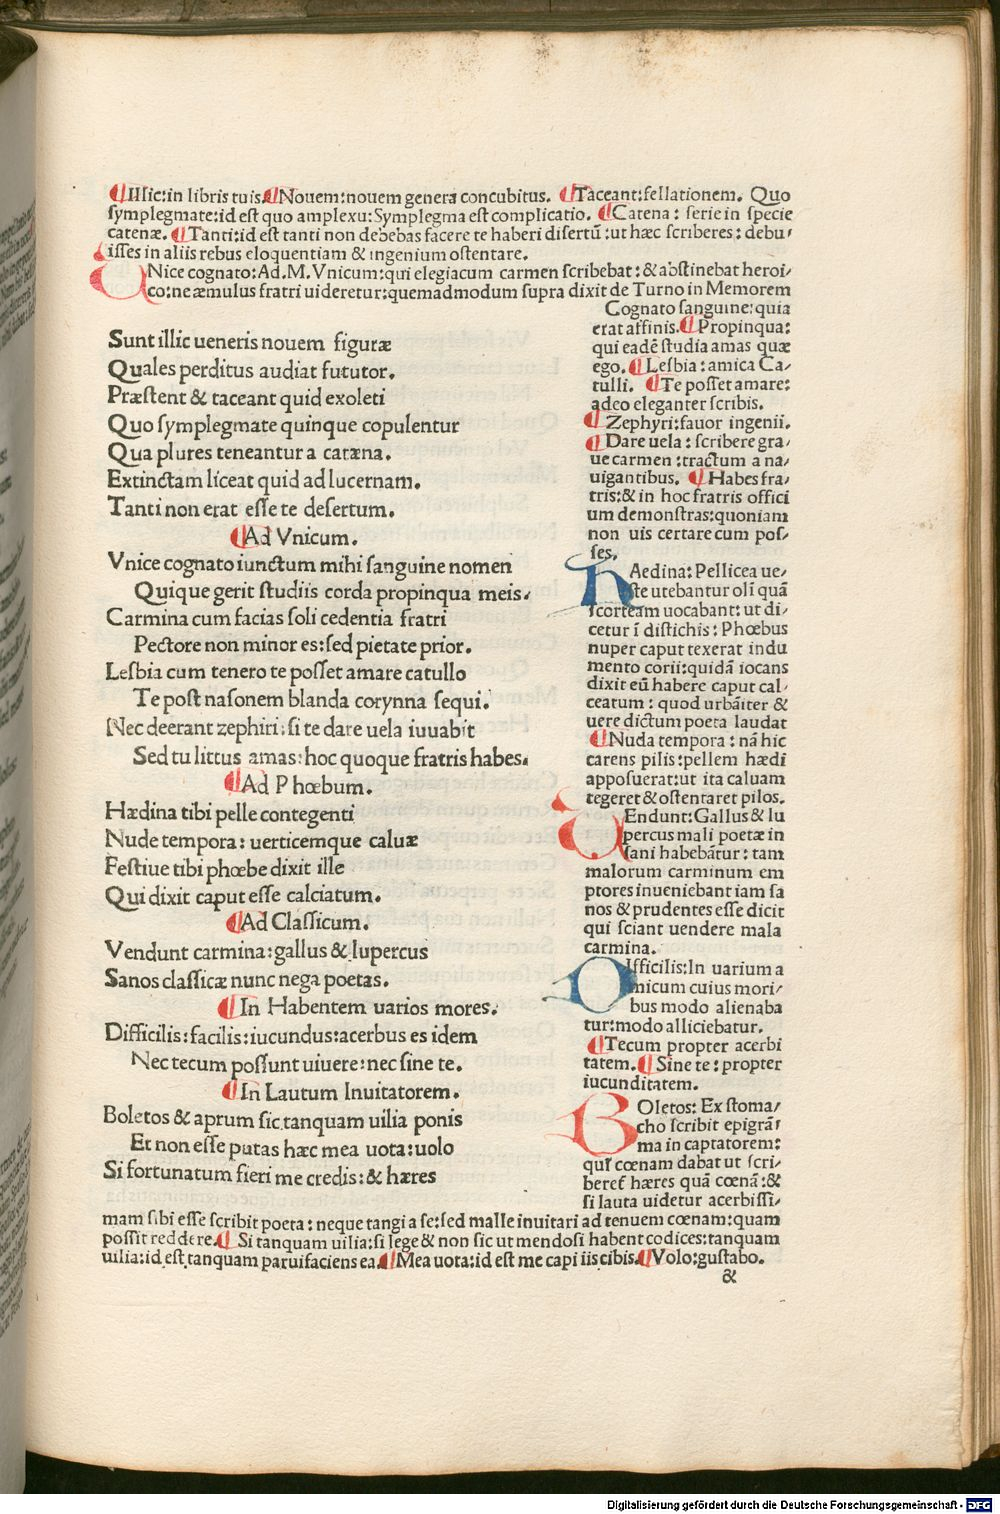 ¶Illic:in libris tuis.¶Nouem:nouem genera concubitus. ¶Taceant:fellationem. Quo
symplegmate:id est quo amplexu:Symplegma est complicatio. ¶Catena: serie in specie
catenæ. ¶Tanti:id est tanti non debebas facere te haberi disertũ:ut hæc scriberes: debu/
isses in aliis rebus eloquentiam & ingenium ostentare.
VNice cognato:Ad.M.Vnicum:qui elegiacum carmen scribebat:& abstinebat heroi/
co:ne æmulus fratri uideretur:quemadmodum supra dixit de Turno in Memorem
Sunt illic ueneris nouem figuræ
Quales perditus audiat fututor.
Præstent & taceant quid exoleti
Quo symplegmate quinque copulentur
Qua plures teneantur a catæna.
Extinctam liceat quid ad lucernam.
Tanti non erat esse te desertum.
¶Ad Vnicum.
Vnice cognato iunctum mihi sanguine nomen
Quique gerit studiis corda propinqua meis.
Carmina cum facias soli cedentia fratri
Pectore non minor es:sed pietate prior.
Lesbia cum tenero te posset amare catullo
Te post nasonem blanda corynna sequi.
Nec deerant zephiri:si te dare uela iuuabit
Sed tu littus amas:hoc quoque fratris habes.
¶Ad Phœbum.
Hædina tibi pelle contegenti
Nude tempora: uerticemque caluæ
Festiue tibi phœbe dixit ille
Qui dixit caput esse calciatum.
¶Ad Classicum.
Vendunt carmina:gallus & lupercus
Sanos classicæ nunc nega poetas.
¶In Habentem uarios mores.
Difficilis:facilis:iucundus:acerbus es idem
Nec tecum possunt uiuere:nec sine te.
¶In Lautum Inuitatorem.
Boletos & aprum sic tanquam uilia ponis
Et non esse putas hæc mea uota:uolo
Si fortunatum fieri me credis:& hæres
Cognato sanguine:quia
erat affinis.¶Propinqua:
qui eadẽ studia amas quæ
ego. ¶Lesbia:amica Ca/
tulli. ¶Te posset amare:
adeo eleganter scribis.
¶Zephyri:fauor ingenii.
¶Dare uela: scribere gra/
ue carmen:tractum a na/
uigantibus. ¶Habes fra/
tris:& in hoc fratris offici
um demonstras:quoniam
non uis certare cum pos/
ses.
hAedina:Pellicea ue/
ste utebantur oli quã
scorteam uocabant:ut di/
cetur ĩ distichis:Phœbus
nuper caput texerat indu
mento corii:quidã iocans
dixit eũ habere caput cal/
ceatum: quod urbãiter &
uere dictum poeta laudat
¶Nuda tempora: nã hic
carens pilis:pellem hædi
apposuerat:ut ita caluam
tegeret & ostentaret pilos.
VEndunt:Gallus & lu
percus mali poetæ in
sani habebãtur: tam
malorum carminum em
ptores inueniebant iam sa
nos & prudentes esse dicit
qui sciant uendere mala
carmina.
DIfficilis:In uarium a
micum cuius mori/
bus modo alienaba
tur:modo alliciebatur.
¶Tecum propter acerbi
tatem.¶Sine te: propter
iucunditatem.
BOletos: Ex stoma/
cho scribit epigrã/
ma in captatorem:
qui cœnam dabat ut scri/
beret hæres quã cœnã:&
si lauta uidetur acerbissi/
mam sibi esse scribit poeta: neque tangi a se:sed malle inuitari ad tenuem cœnam:quam
possit reddere.¶ Si tanquam uilia:si lege & non sic ut mendosi habent codices:tanquam
uilia:id est tanquam paruifaciens ea.¶Mea uota:id est me capi iis cibis.¶Volo:gustabo.
&
Digitalisierung gefördert durch die Deutsche Forschungsgemeinschaft - DFG